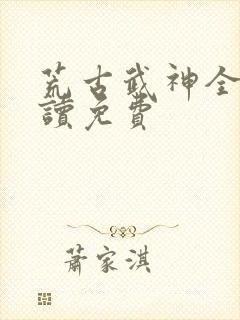 荒古武神全
讀免費
蕭家淇